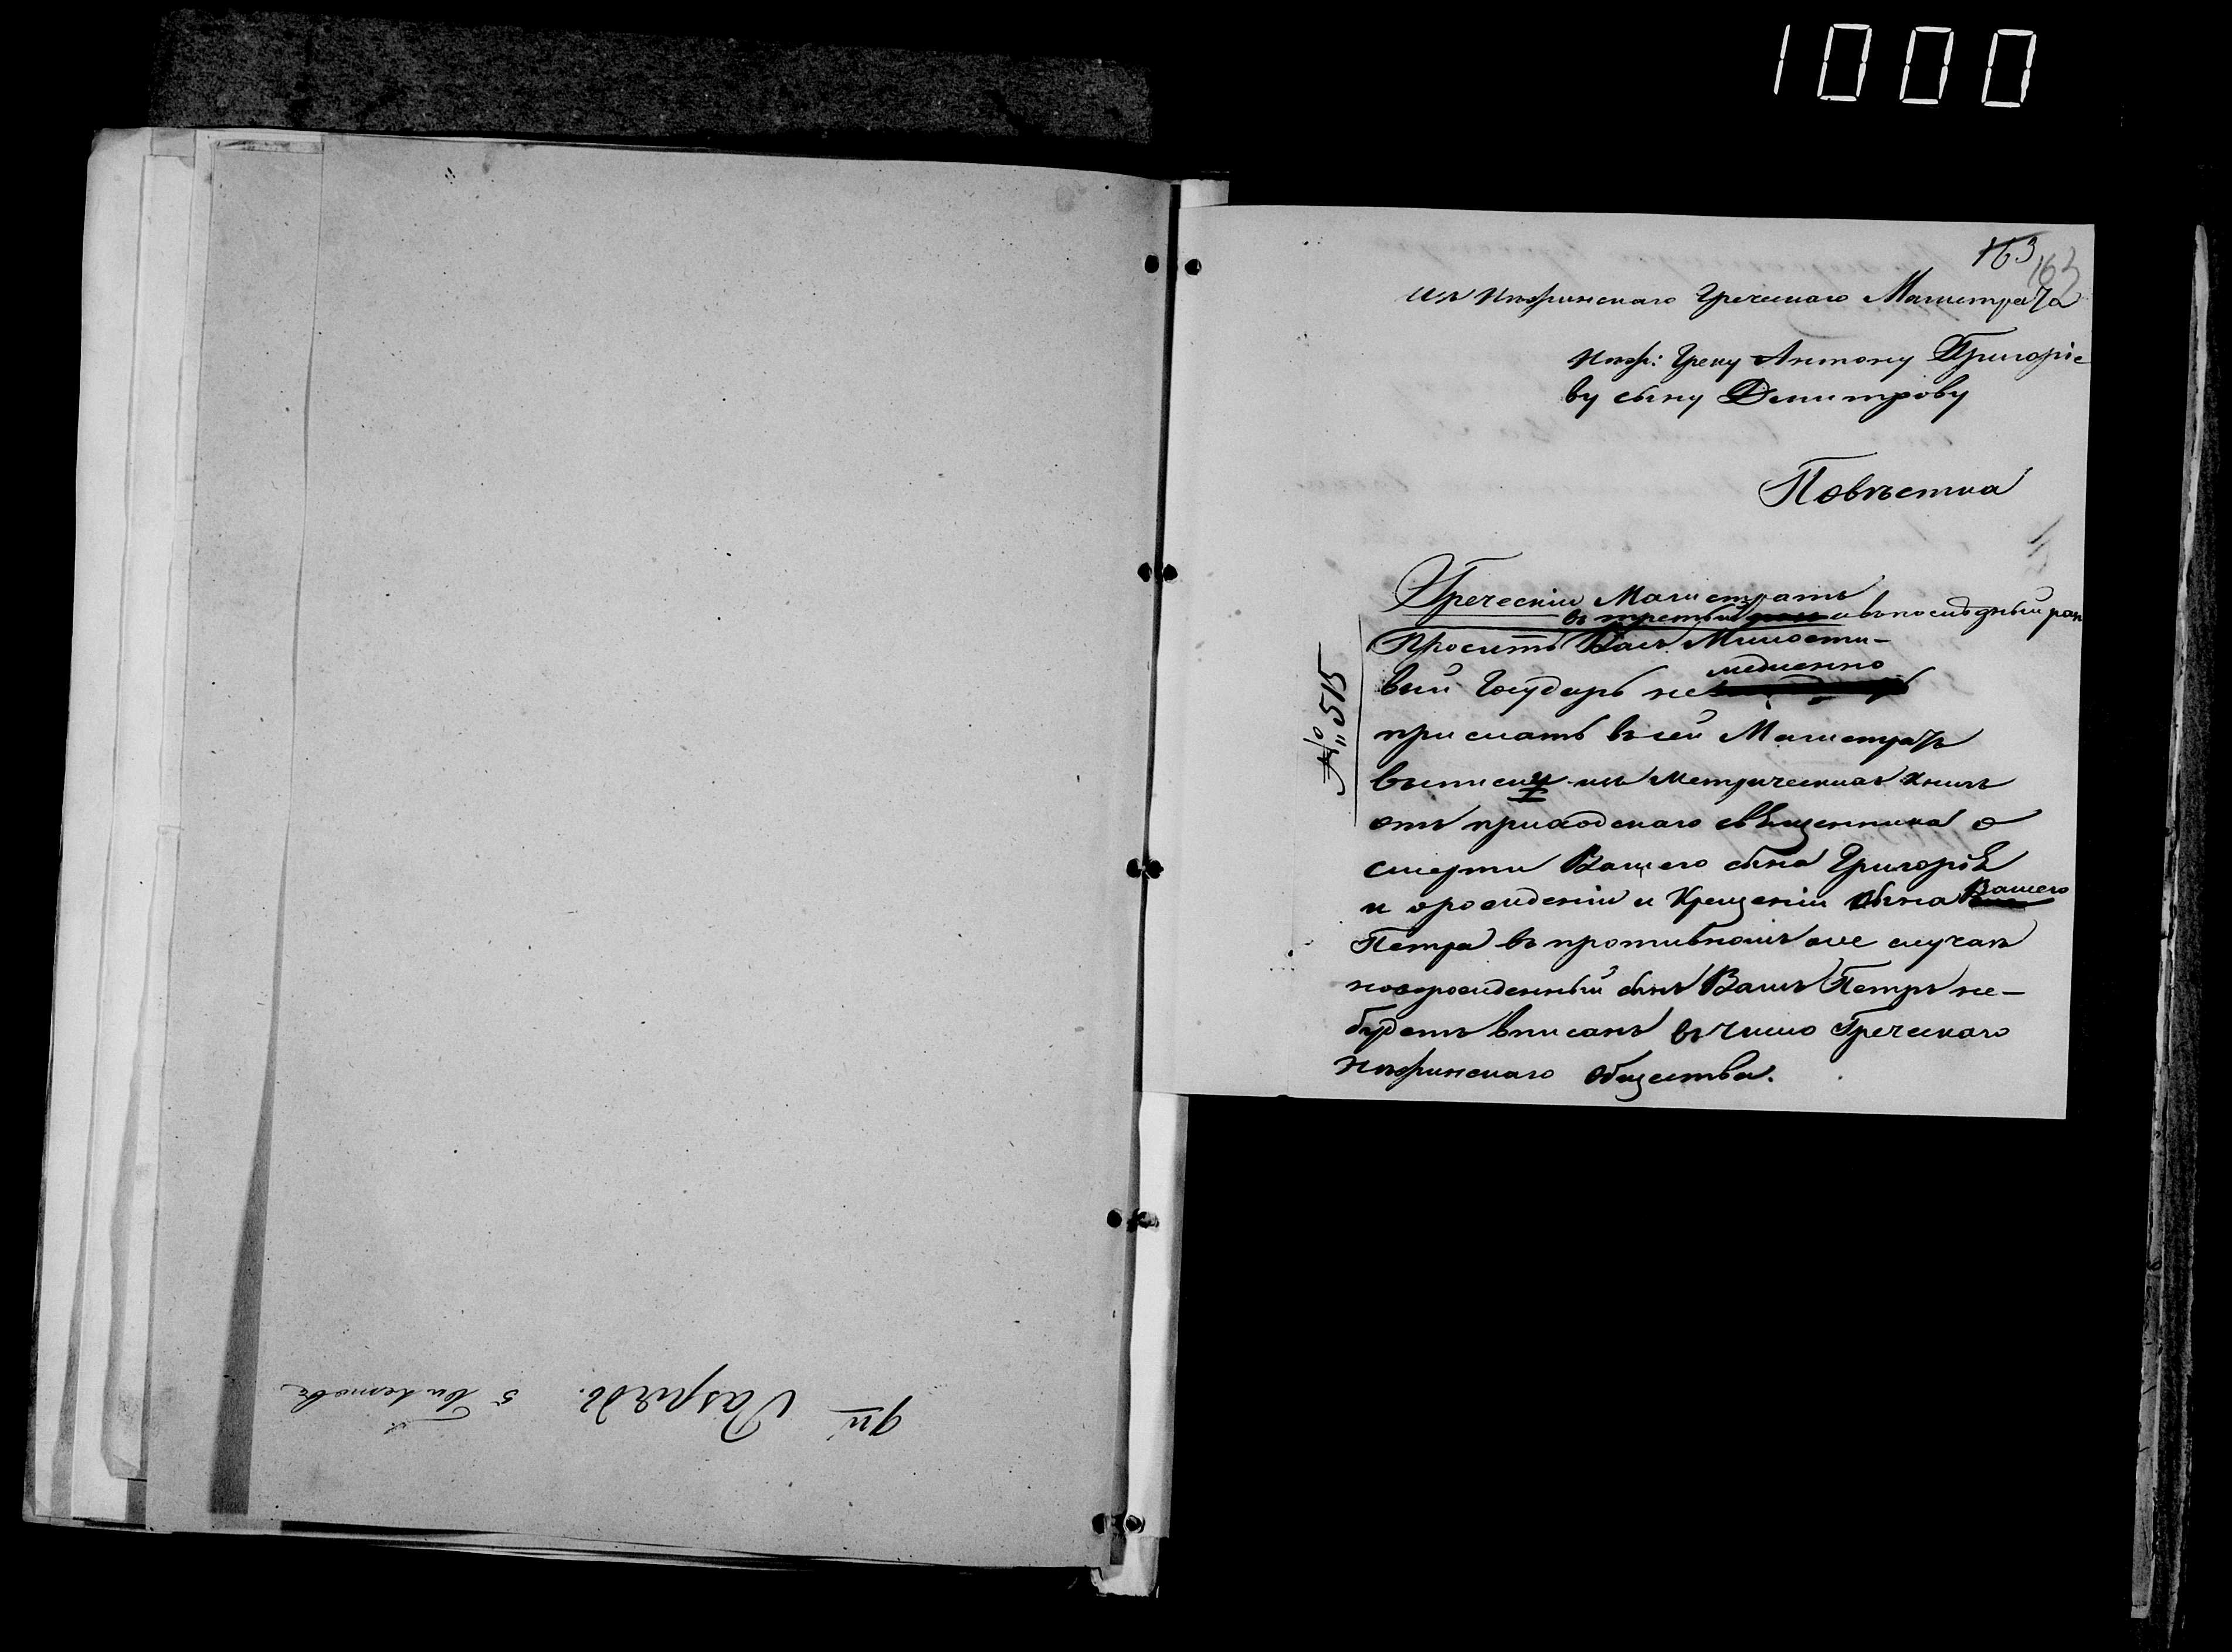 1000
163
163
Изъ Нѣжинскаго Греческаго Магистрата
Нѣж: Греку Антону Григоріе
ву сыну Димитрову
Повѣстка
Греческій Магистратъ
въ третій разъ и въ послѣдный разъ
Проситъ Васъ Милости-
медленно
вый Государь не
прислать въ сей Магистратъ
№ 515
выписки изъ Метрическихъ книгъ
отъ приходскаго священника о
смерти Вашего сына Григорія
и о рожденіи и Крещеніи сына Вашего
Петра въ противномъ же случаѣ
новорожденный сынъ Вашъ Петръ не-
будетъ вписанъ въ число Греческаго
Нѣжинскаго Общества.
9й Разрядъ. 5 билетовъ